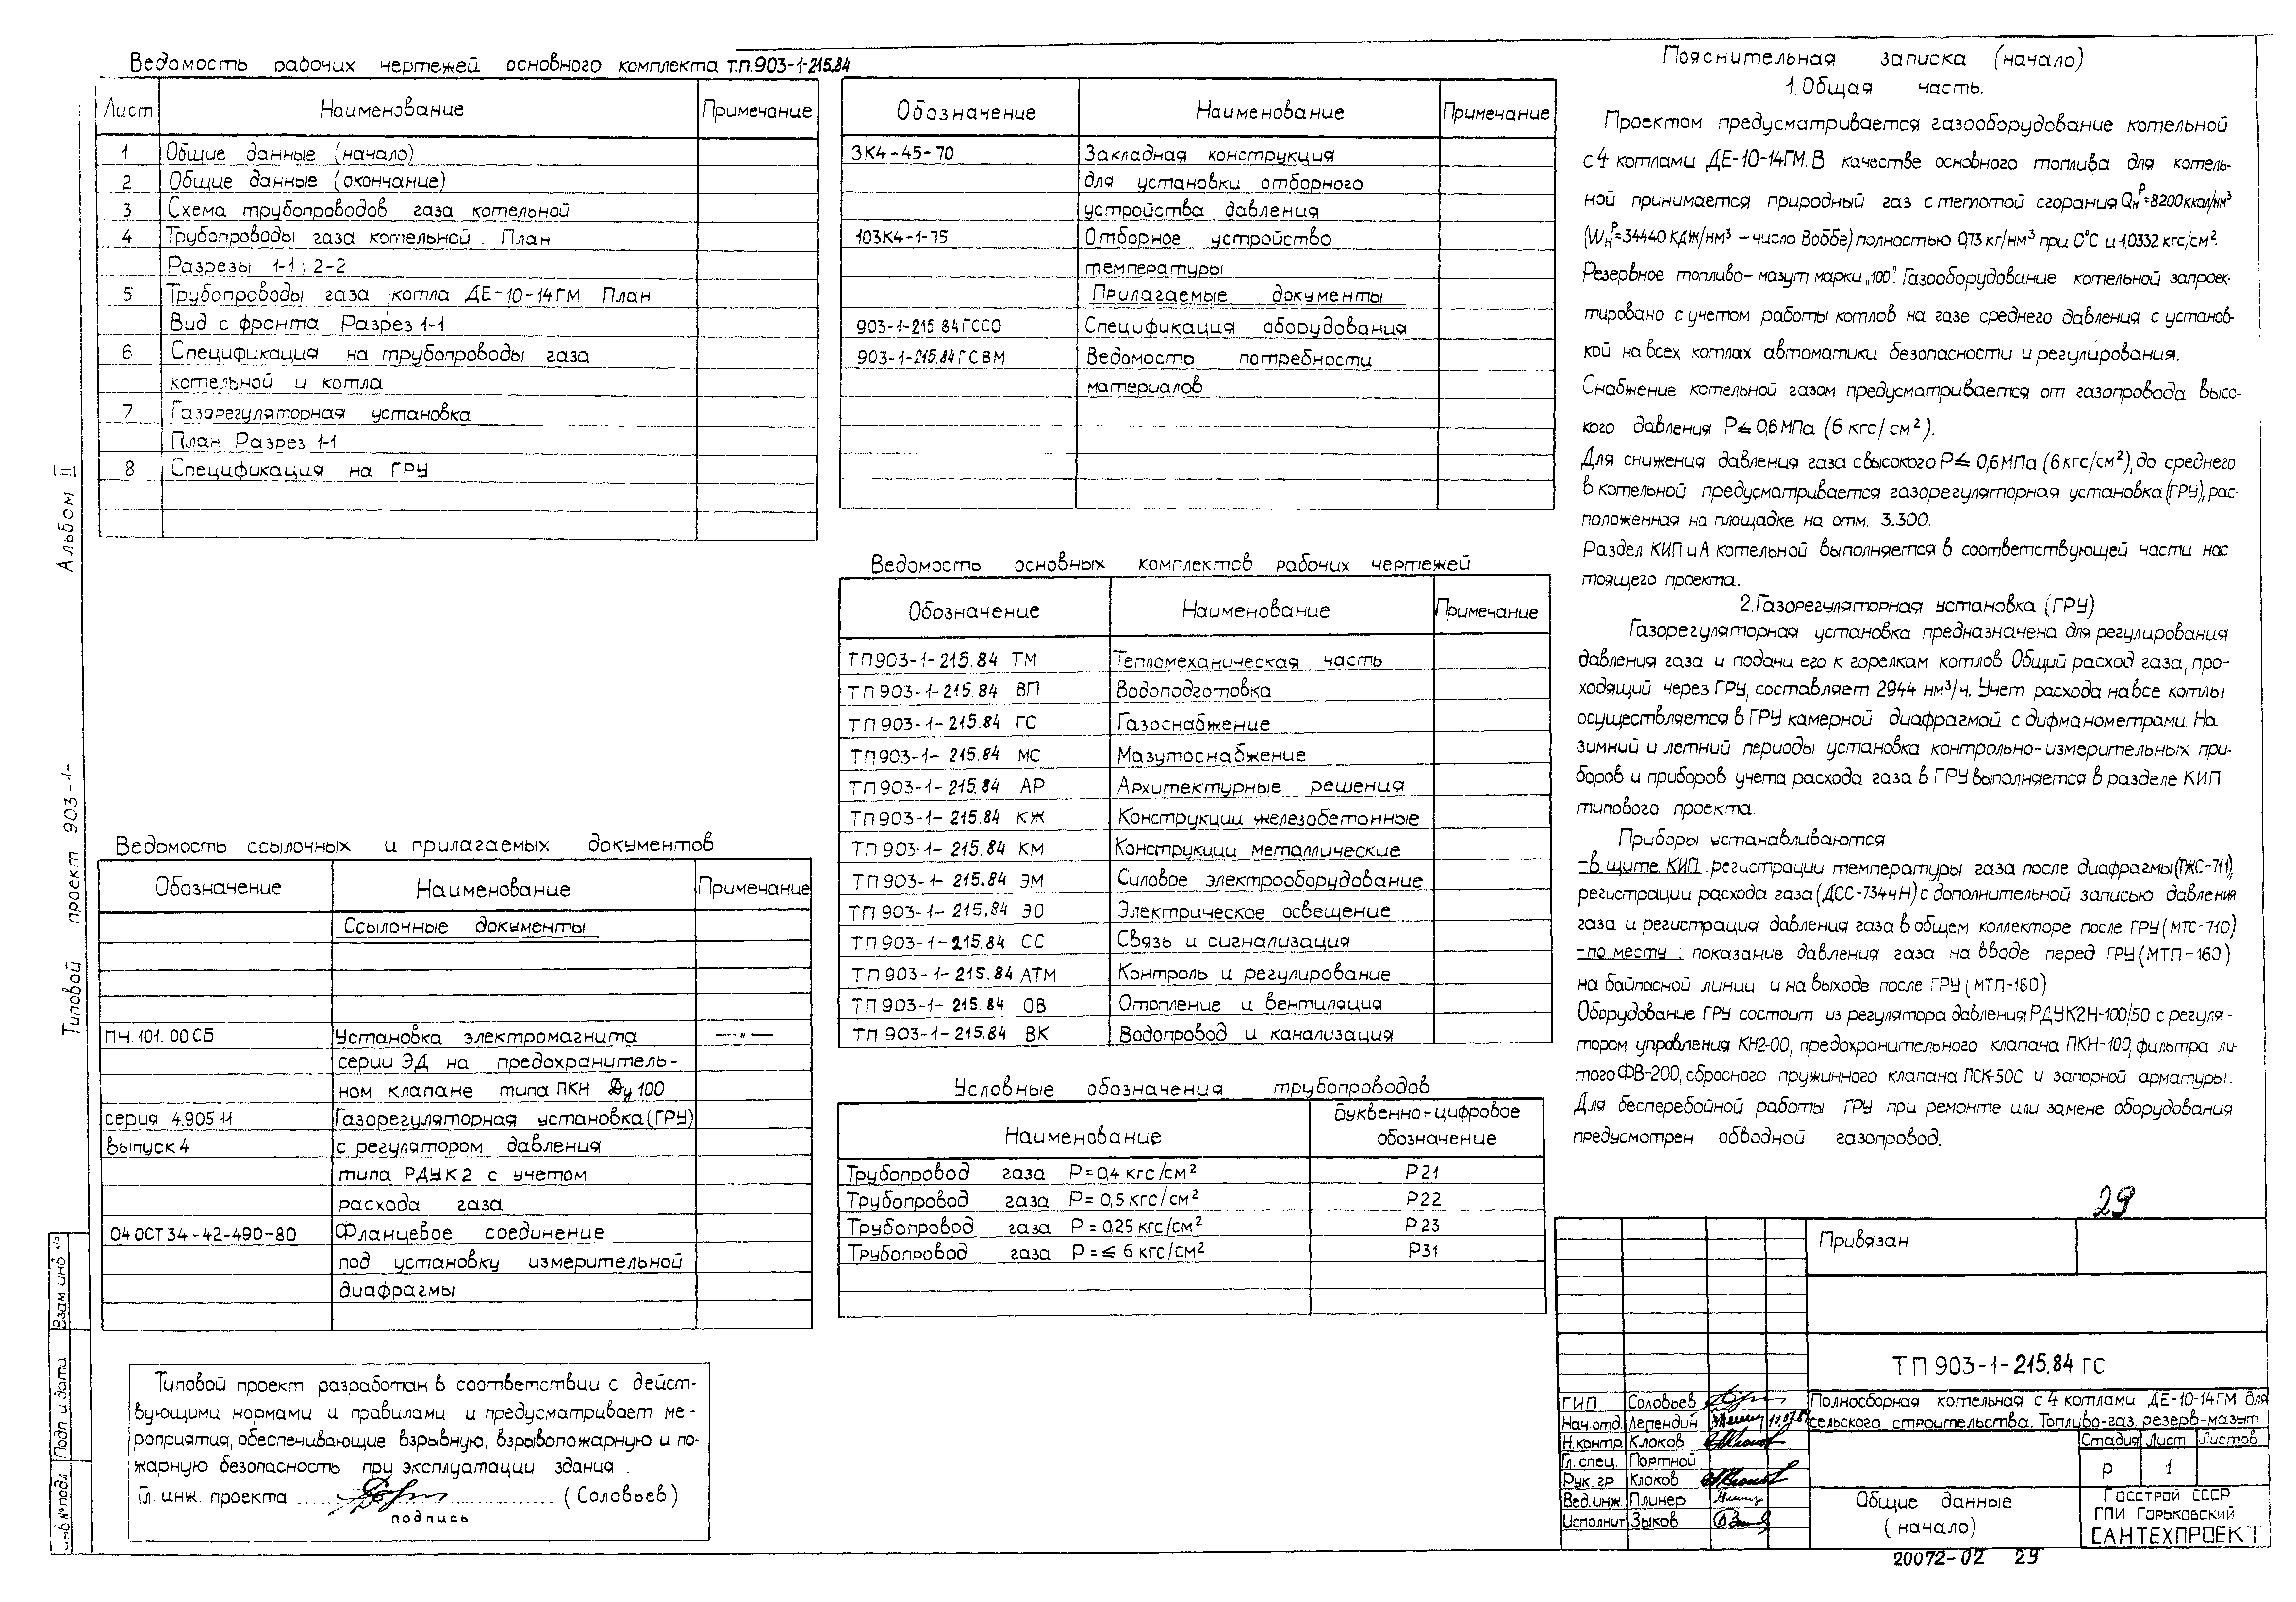 Ведомость рабочих чертежей основного комплекта т.п.903-1-215.84
Лист Наименование Примечание
1 Общие данные (начало)
2 Общие данные (окончание)
3 Схема трубопроводов газа котельной
4 Трубопроводы газа котельной. План
Разрезы 1-1; 2-2
5 Трубопроводы газа котла ДЕ-10-14ГМ План
Вид с фронта. Разрез 1-1
6 Спецификация на трубопроводы газа
котельной и котла
7 Газорегуляторная установка
План Разрез 1-1
8 Спецификация на ГРУ
Ведомость ссылочных и прилагаемых документов
Обозначение Наименование Примечание
Ссылочные документы
ПЧ.101.00СБ Установка электромагнита —"—
серии ЭД на предохранитель-
ном клапане типа ПКН Ду100
серия 4.905 11 Газорегуляторная установка(ГРУ)
выпуск 4 с регулятором давления
типа РДУК2 с учетом
расхода газа
04 ОСТ 34-42-490-80 Фланцевое соединение
под установку измерительной
диафрагмы
Типовой проект разработан в соответствии с дейст-
вующими нормами и правилами и предусматривает ме-
роприятия, обеспечивающие взрывную, взрывопожарную и по-
жарную безопасность при эксплуатации здания.
Гл. инж. проекта (Соловьев)
подпись
Обозначение Наименование Примечание
ЗК4-45-70 Закладная конструкция
для установки отборного
устройства давления
103К4-1-75 Отборное устройство
температуры
Прилагаемые документы
903-1-215 84 ГССО Спецификация оборудования
903-1-215.84 ГСВМ Ведомость потребности
материалов
Ведомость основных комплектов рабочих чертежей
Обозначение Наименование Примечание
ТП903-1-215.84 ТМ Тепломеханическая часть
ТП903-1-215.84 ВП Водоподготовка
ТП903-1-215.84 ГС Газоснабжение
ТП903-1-215.84 МС Мазутоснабжение
ТП903-1-215.84 АР Архитектурные решения
ТП903-1-215.84 КЖ Конструкции железобетонные
ТП903-1-215.84 КМ Конструкции металлические
ТП903-1-215.84 ЭМ Силовое электрооборудование
ТП903-1-215.84 ЭО Электрическое освещение
ТП903-1-215.84 СС Связь и сигнализация
ТП903-1-215.84 АТМ Контроль и регулирование
ТП903-1-215.84 ОВ Отопление и вентиляция
ТП903-1-215.84 ВК Водопровод и канализация
Условные обозначения трубопроводов
Наименование Буквенно-цифровое
обозначение
Трубопровод газа Р=0,4 кгс/см² Р21
Трубопровод газа Р=0,5 кгс/см² Р22
Трубопровод газа Р=0,25 кгс/см² Р23
Трубопровод газа Р=≤ 6 кгс/см² Р31
Пояснительная записка (начало)
1. Общая часть.
Проектом предусматривается газооборудование котельной
с 4 котлами ДЕ-10-14ГМ. В качестве основного топлива для котель-
ной принимается природный газ с теплотой сгорания Qнᴾ=8200ккал/нм³
(Wнᴾ=34440 КДж/нм³ – число Воббе) полностью 0,73 кг/нм³ при 0°С и 1,0332 кгс/см².
Резервное топливо-мазут марки „100". Газооборудование котельной запроек-
тировано с учетом работы котлов на газе среднего давления с установ-
кой на всех котлах автоматики безопасности и регулирования.
Снабжение котельной газом предусматривается от газопровода высо-
кого давления Р≤0,6МПа (6 кгс/см²).
Для снижения давления газа с высокого Р≤0,6МПа (6кгс/см²), до среднего
в котельной предусматривается газорегуляторная установка (ГРУ), рас-
положенная на площадке на отм. 3.300.
Раздел КИП и А котельной выполняется в соответствующей части нас-
тоящего проекта.
2. Газорегуляторная установка (ГРУ)
Газорегуляторная установка предназначена для регулирования
давления газа и подачи его к горелкам котлов Общий расход газа, про-
ходящий через ГРУ, составляет 2944 нм³/ч. Учет расхода на все котлы
осуществляется в ГРУ камерной диафрагмой с дифманометрами. На
зимний и летний периоды установка контрольно-измерительных при-
боров и приборов учета расхода газа в ГРУ выполняется в разделе КИП
типового проекта.
Приборы устанавливаются
-в щите КИП. регистрации температуры газа после диафрагмы(ТЖС-711),
регистрации расхода газа (ДСС-734чН) с дополнительной записью давления
газа и регистрация давления газа в общем коллекторе после ГРУ (МТС-710)
-по месту: показание давления газа на вводе перед ГРУ (МТП-160)
на байпасной линии и на выходе после ГРУ (МТП-160)
Оборудование ГРУ состоит из регулятора давления РДУК2Н-100/50 с регуля-
тором управления КН2-00, предохранительного клапана ПКН-100, фильтра ли-
того ФВ-200, сбросного пружинного клапана ПСК-50С и запорной арматуры.
Для бесперебойной работы ГРУ при ремонте или замене оборудования
предусмотрен обводной газопровод.
29
Привязан
ТП 903-1-215.84 ГС
ГИП Соловьев
Нач.отд. Лепендин
Н.контр. Клоков
Гл. спец. Портной
Рук. гр Клоков
Вед.инж. Плинер
Исполнит Зыков
Полносборная котельная с 4 котлами ДЕ-10-14ГМ для
сельского строительства. Топливо-газ, резерв-мазут
Стадия Лист Листов
Р 1
Общие данные
(начало)
Госстрой СССР
ГПИ Горьковский
САНТЕХПРОЕКТ
20072-02 29
Типовой проект 903-1- Альбом II
Инв № подл Подп и дата Взам инв №